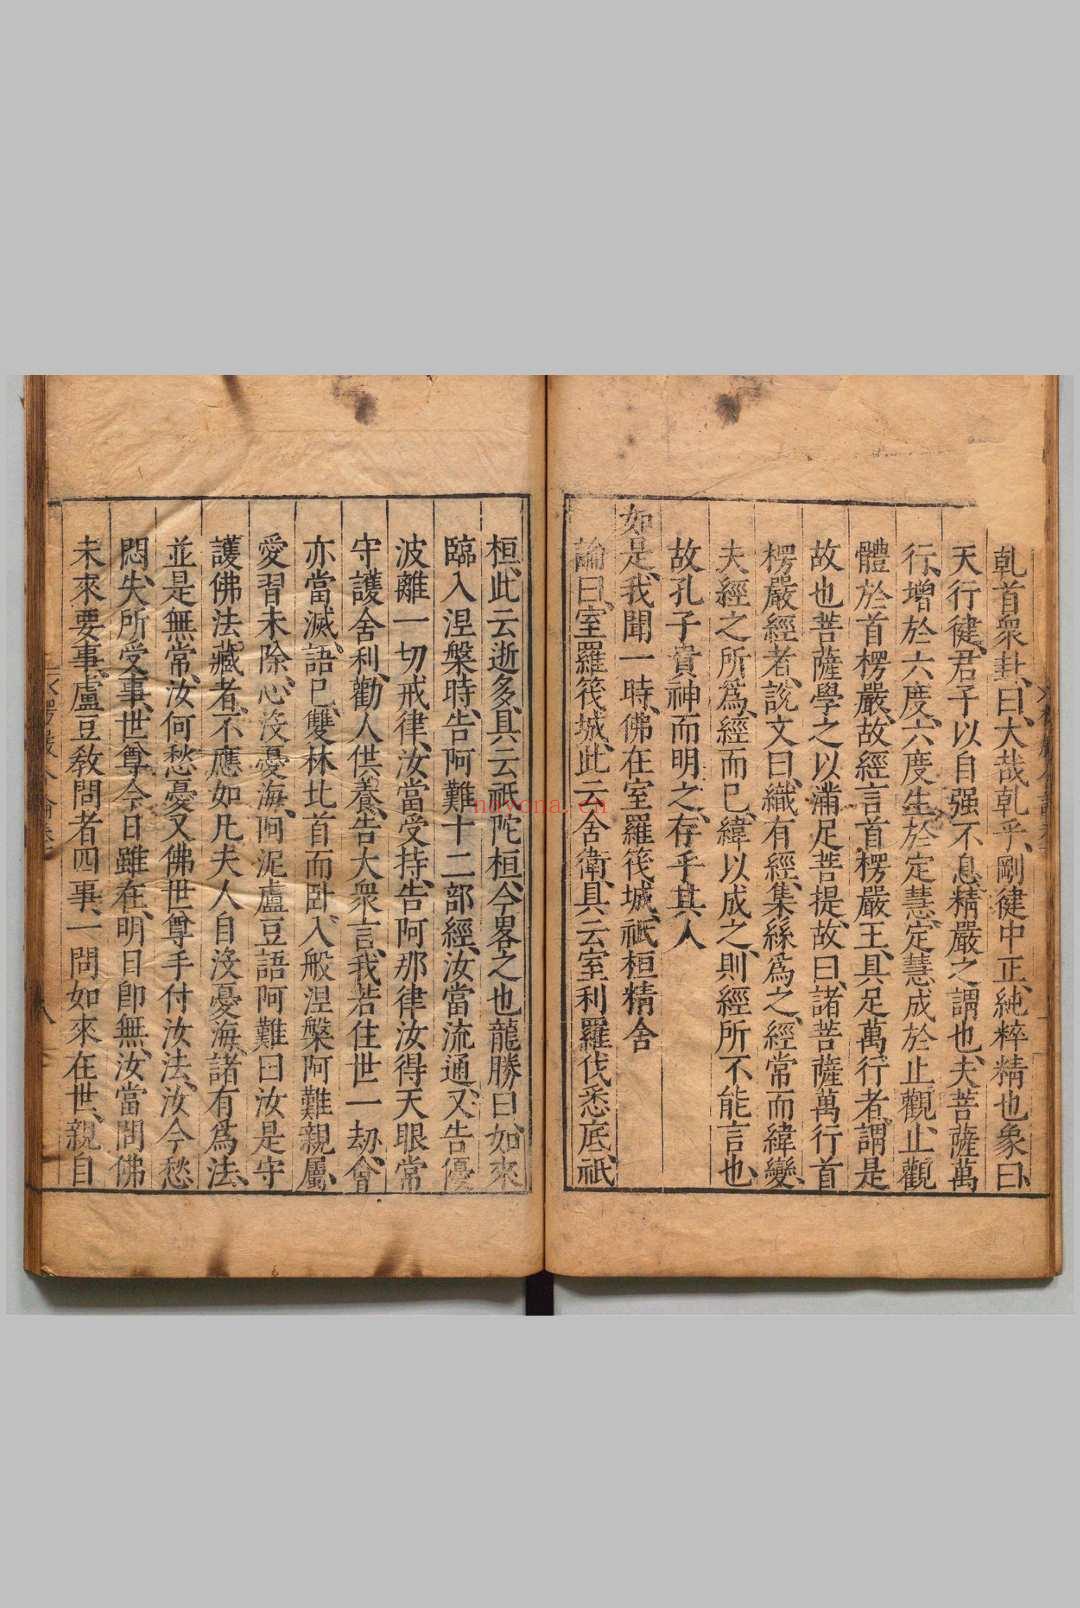 乹首衆卦、曰、大哉乹乎、剛健中正、純粹精也、象曰、
天行健、君子以自强不息、精嚴之謂也、夫菩薩萬
行、增於六度、六度生於定慧、定慧成於止觀、止觀
體於首楞嚴、故經言首楞嚴王、具足萬行者、謂是
故也、菩薩學之、以滿足菩提、故曰、諸菩薩萬行首
楞嚴經者、說文曰、織有經、集絲爲之、經常而緯變、
夫經之所爲、經而已、緯以成之、則經所不能言也、
故孔子貴神而明之、存乎其人
如是、我聞一時、佛在室羅筏城、祇桓精舍
論曰、室羅筏城、此云舍衛、具云室利羅伐悉底、祇
桓、此云逝多、具云祇陀桓、今畧之也、龍勝曰、如來
臨入涅槃時、告阿難、十二部經、汝當流通、又告優
波離、一切戒律、汝當受持、告阿那律、汝得天眼、常
守護舍利、勸人供養、告大衆言、我若住世一劫、會
亦當滅、語已、雙林北首而臥、入般涅槃、阿難親屬、
愛習未除、心沒憂海、阿泥盧豆語阿難曰、汝是守
護佛法藏者、不應如凡夫人、自沒憂海、諸有爲法、
並是無常、汝何愁憂、又佛世尊手付汝法、汝今愁
悶、失所受事、世尊今日雖在、明日卽無、汝當問佛
未來要事、盧豆敎問者四事、一問如來在世、親自
楞嚴合論卷
八